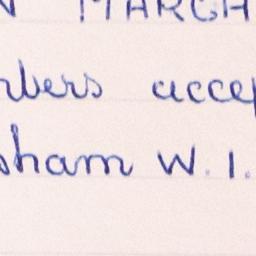 N MARCH
rbers accep
sham W.I.